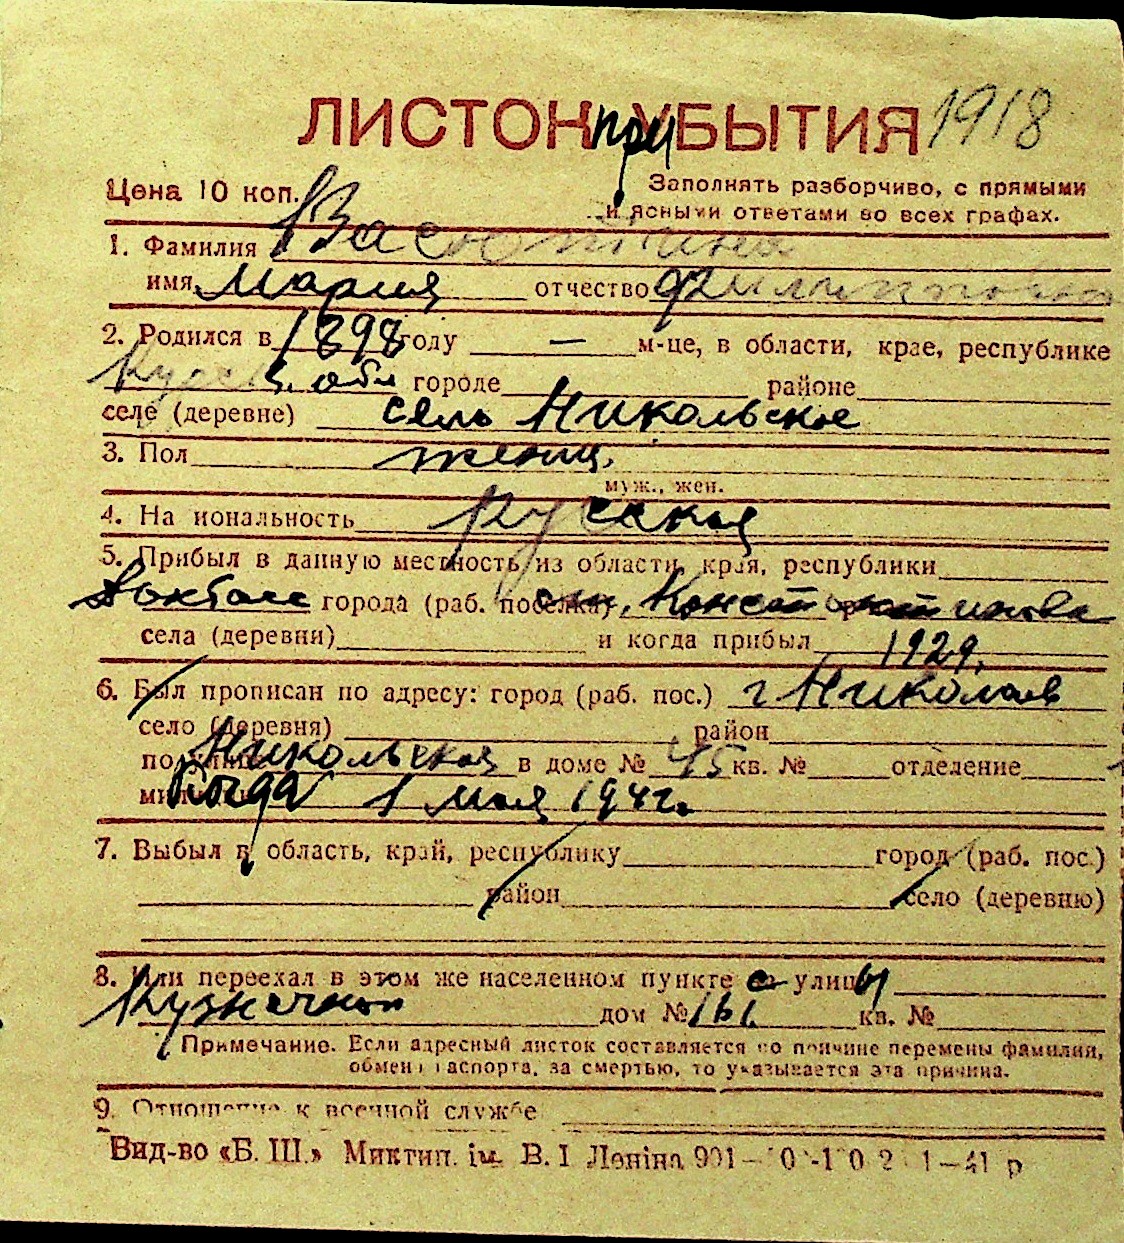 ЛИСТОК при УБЫТИЯ 1918
Цена 10 коп. Заполнять разборчиво, с прямыми
и ясными ответами во всех графах.
1. Фамилия Васютина
имя Мария отчество Филипповна
2. Родился в 1898 году — м-це, в области, крае, республике
Курск. обл городе районе
селе (деревне) село Никольское
3. Пол женщ.
муж., жен.
4. На иональность русская
5. Прибыл в данную местность из области, края, республики
города (раб. поселка) ст. Константиновка
села (деревни) и когда прибыл 1929.
6. Был прописан по адресу: город (раб. пос.) г. Николаев
село (деревня) район
по улице Никольская в доме № 45 кв. № отделение
Когда 1 мая 194 г.
7. Выбыл в область, край, республику город (раб. пос.)
район село (деревню)
8. Или переехал в этом же населенном пункте с улицы
Кузнечной дом № 161. кв. №
Примечание. Если адресный листок составляется по причине перемены фамилии,
обмен паспорта, за смертью, то указывается эта причина.
9. Отношение к военной службе
Вид-во «Б. Ш.» Миктип. ім. В. І Леніна